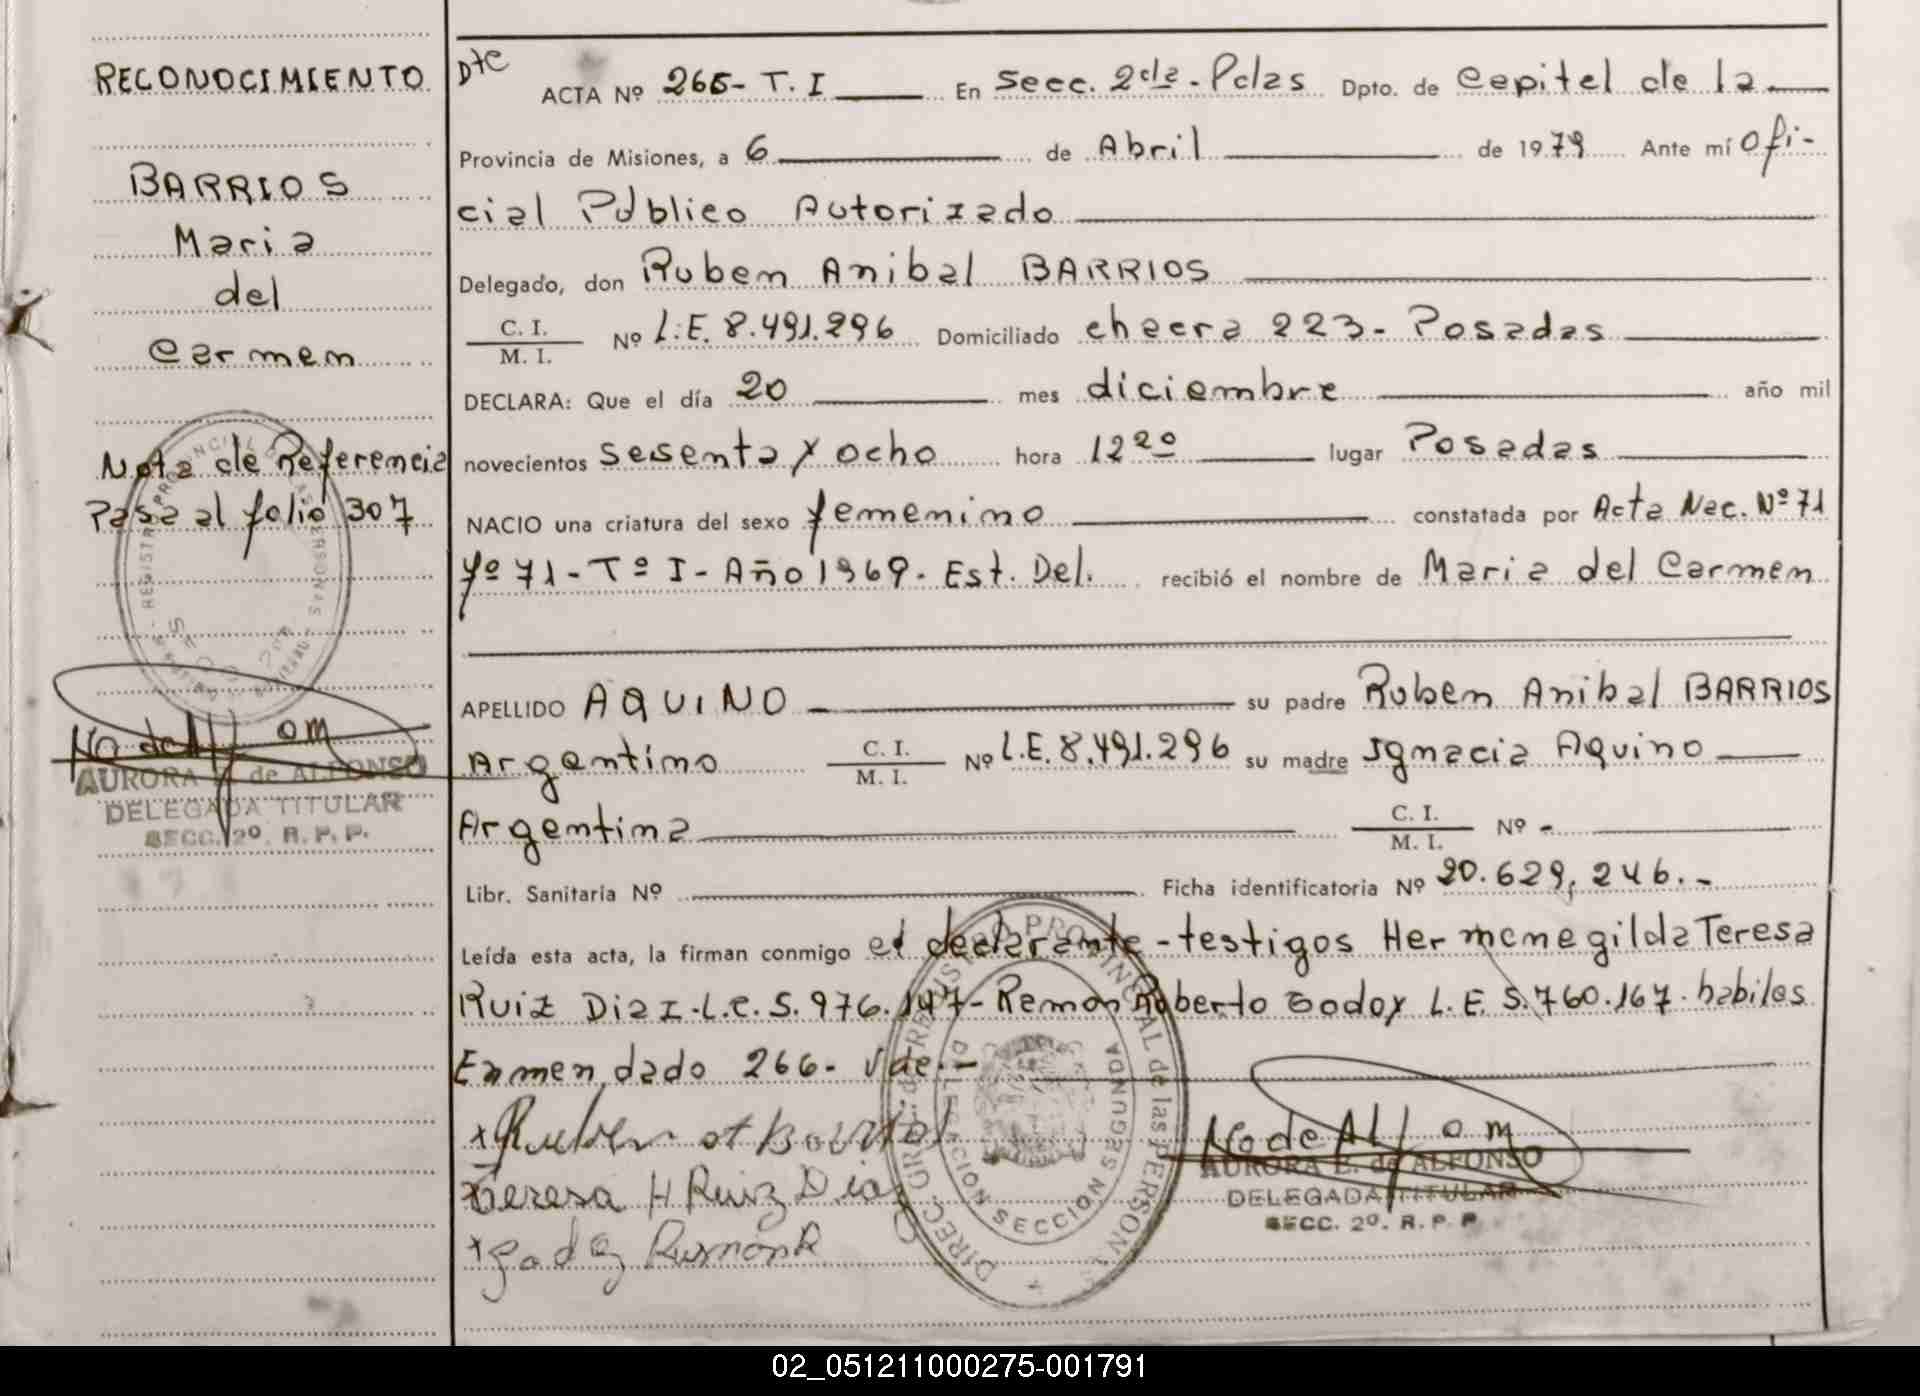 RECONOCIMIENTO
BARRIOS
Maria
del
Carmen
Nota de Referencia
Pasa al folio 307
AURORA E. de ALFONSO
DELEGADA TITULAR
SECC. 2º. R. P. P.
Dtc
ACTA Nº 265- T. I En Secc. 2da - Pdas Dpto. de Capital de la
Provincia de Misiones, a 6 de Abril de 1979 Ante mí Ofi-
cial Público Autorizado
Delegado, don Ruben Anibal BARRIOS
C. I.
M. I. Nº L.E. 8.491.296 Domiciliado chacra 223- Posadas
DECLARA: Que el día 20 mes diciembre año mil
novecientos sesenta y ocho hora 12 20 lugar Posadas
NACIO una criatura del sexo femenino constatada por Acta Nac. Nº 71
Fº 71 - Tº I - Año 1969. Est. Del. recibió el nombre de Maria del Carmen
APELLIDO AQUINO su padre Ruben Anibal BARRIOS
Argentino C. I.
M. I. Nº L.E. 8.491.296 su madre Ignacia Aquino
Argentina C. I.
M. I. Nº -
Libr. Sanitaria Nº Ficha identificatoria Nº 20.629.246.-
Leída esta acta, la firman conmigo el declarante - testigos Hermenegilda Teresa
Ruiz Diaz - L.C. 5.976.147- Ramon Roberto Godoy L.E. 5.760.167. habiles
Enmendado 266- Vale.-
Teresa H Ruiz Diaz
DIREC. GRAL. REGISTRO PROVINCIAL de las PERSONAS
DELEGACION SECCION SEGUNDA
AURORA E. de ALFONSO
DELEGADA TITULAR
SECC. 2º. R. P. P.
02_051211000275-001791